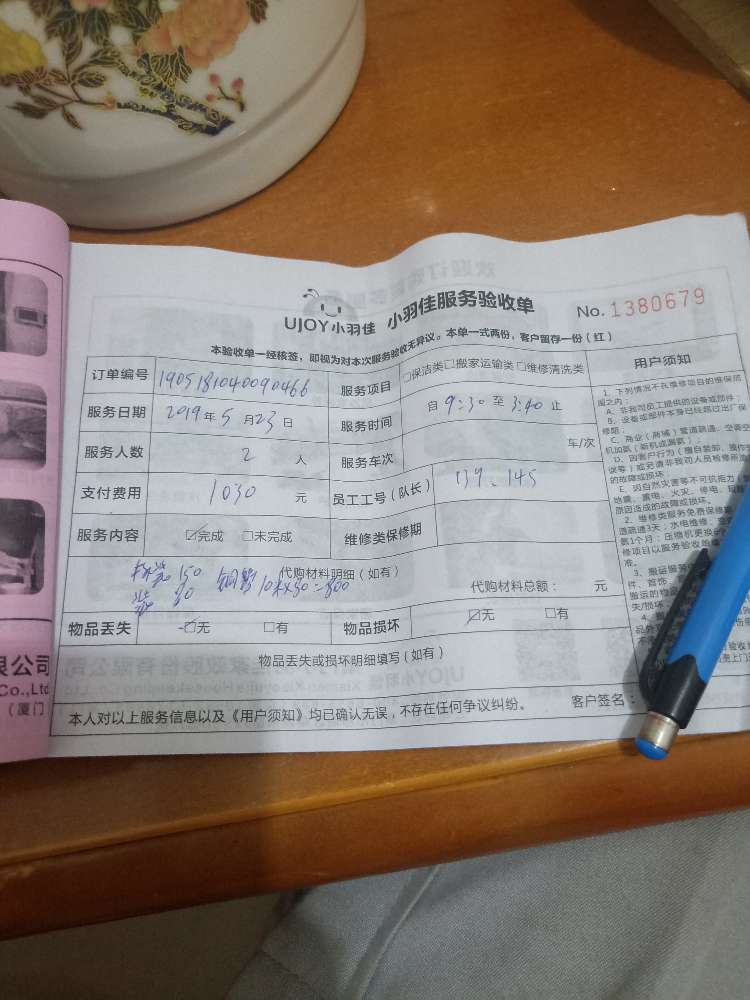 UJOY小羽佳 小羽佳服务验收单
No. 1380679
本验收单一经核签，即视为对本次服务验收无异议。本单一式两份，客户留存一份（红）
订单编号 1905181040090466 服务项目 □保洁类□搬家运输类□维修清洗类 用户须知
服务日期 2019年5月23日 服务时间 自 9:30 至 3:40 止
服务人数 2 人 服务车次 车/次
支付费用 1030 元 员工工号（队长） 139、145
服务内容 ☑完成 □未完成 维修类保修期
代购材料明细（如有）
150 铜管10米×80=800
80
代购材料总额： 元
物品丢失 ☑无 □有 物品损坏 ☑无 □有
物品丢失或损坏明细填写（如有）
本人对以上服务信息以及《用户须知》均已确认无误，不存在任何争议纠纷。 客户签名：
1、下列情况不在维修项目的维保范
围之内：
A、非我司员工提供的设备或部件；
B、设备或部件本身已经超过出厂保
修期；
C、商业（商铺）管道疏通、空调空
机加氨（新机或漏氨）；
的故障或损坏；
E、因自然灾害等不可抗力
地震、雷电、火灾、停电、
原因造成的故障或损坏。
2、维修类服务免费保修期
道疏通3天；水电维修、
修项目以服务验收
准。
3、搬运服
件、首饰、
搬运的物品
失/损坏
限公司
Co.,Ltd
（厦门